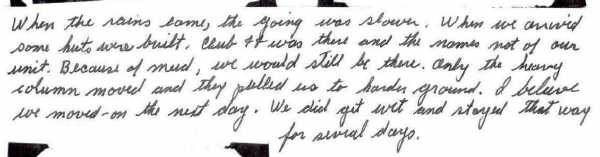 When the rains came, the going was slower. When we arrived
some huts were built. Club ++ was there and the names not of our
unit. Because of mud, we would still be there. Only the heavy
column moved and they pulled us to harder ground. I believe
we moved-on the next day. We did get wet and stayed that way
for several days.